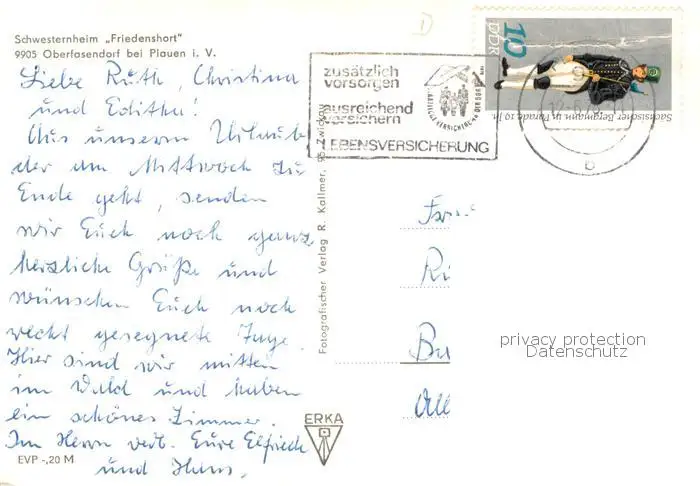 Schwesternheim „Friedenshort"
9905 Oberfasendorf bei Plauen i. V.
Liebe Ruth, Christina
und Editha!
Aus unserm Urlaub
der am Mittwoch zu
Ende geht, senden
wir Euch noch ganz
herzliche Grüße und
wünschen Euch noch
recht gesegnete Tage.
Hier sind wir mitten
im Wald und haben
ein schönes Zimmer.
Im Herrn verb. Eure Elfriede
und Hans.
EVP -,20 M
Fotografischer Verlag R. Kallmer, 95 Zwickau
ERKA
zusätzlich
vorsorgen
ausreichend
versichern
LEBENSVERSICHERUNG
STAATLICHE VERSICHERUNG DER DDR
10
DDR
Sächsischer Bergmann in Parade, 19. Jh.
b
Fam.
Ri
Bu
privacy protection
Datenschutz